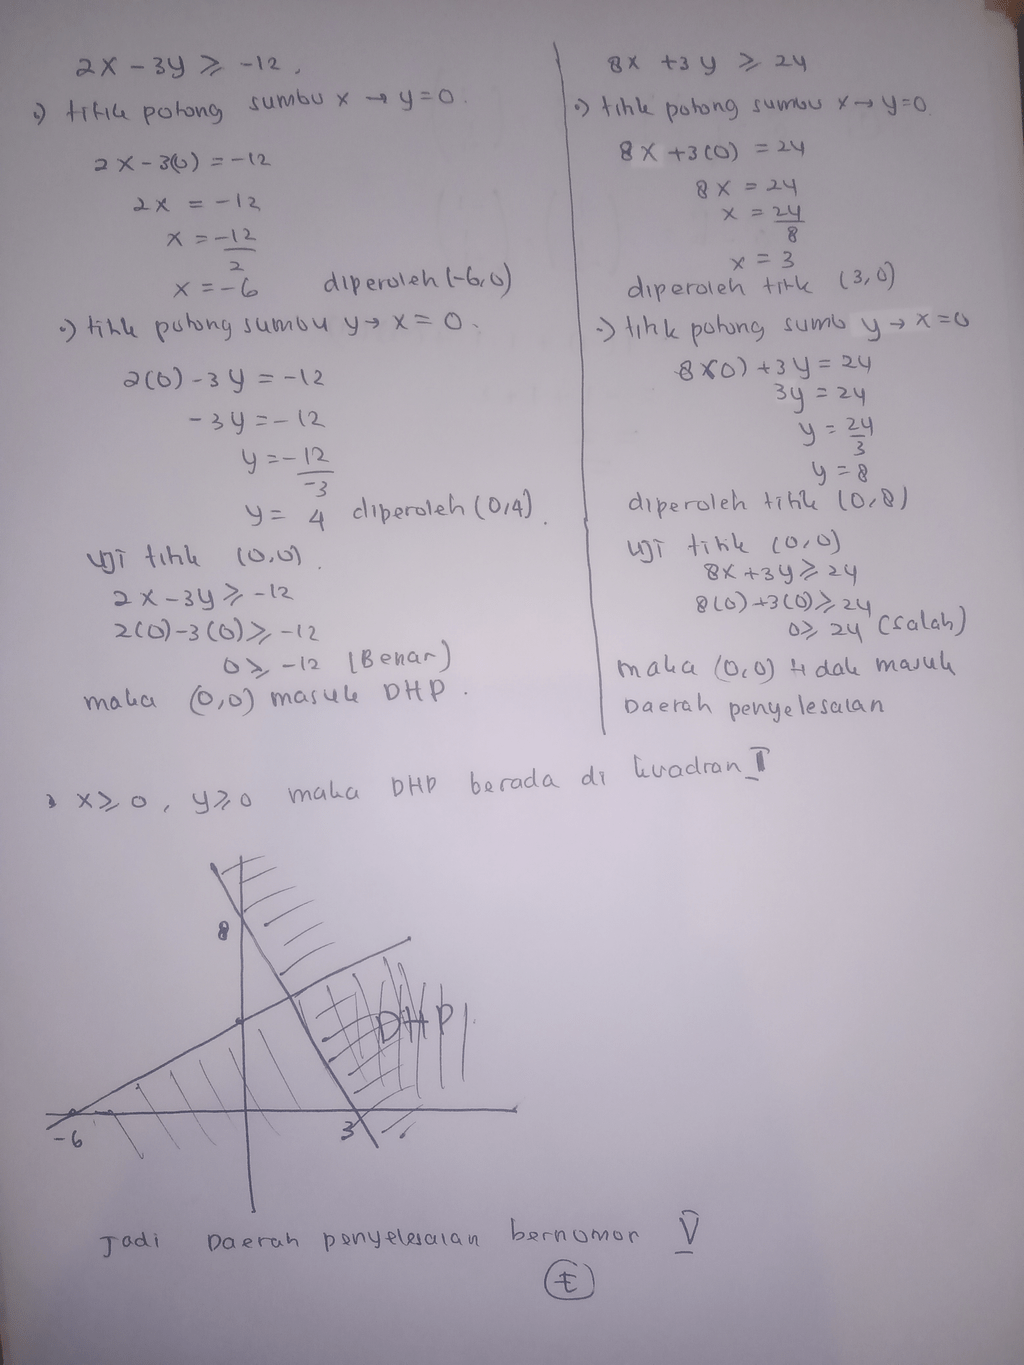 2x - 3y ≥ -12.
•) titik potong sumbu x → y=0.
2x - 3(0) = -12
2x = -12
x = -12/2
x = -6 diperoleh (-6,0)
•) titik potong sumbu y → x = 0.
2(0) - 3y = -12
-3y = -12
y = -12/-3
y = 4 diperoleh (0,4).
Uji titik (0,0).
2x - 3y ≥ -12
2(0) - 3(0) ≥ -12
0 ≥ -12 (Benar)
maka (0,0) masuk DHP.
8x + 3y ≥ 24
•) titik potong sumbu x → y=0
8x + 3(0) = 24
8x = 24
x = 24/8
x = 3
diperoleh titik (3,0)
•) titik potong sumb y → x=0
8(0) + 3y = 24
3y = 24
y = 24/3
y = 8
diperoleh titik (0,8)
Uji titik (0,0)
8x + 3y ≥ 24
8(0) + 3(0) ≥ 24
0 ≥ 24 (salah)
maka (0,0) tidak masuk
Daerah penyelesaian
x ≥ 0, y ≥ 0 maka DHP berada di kuadran I
8
DHP
-6
3
Jadi Daerah penyelesaian bernomor V
E